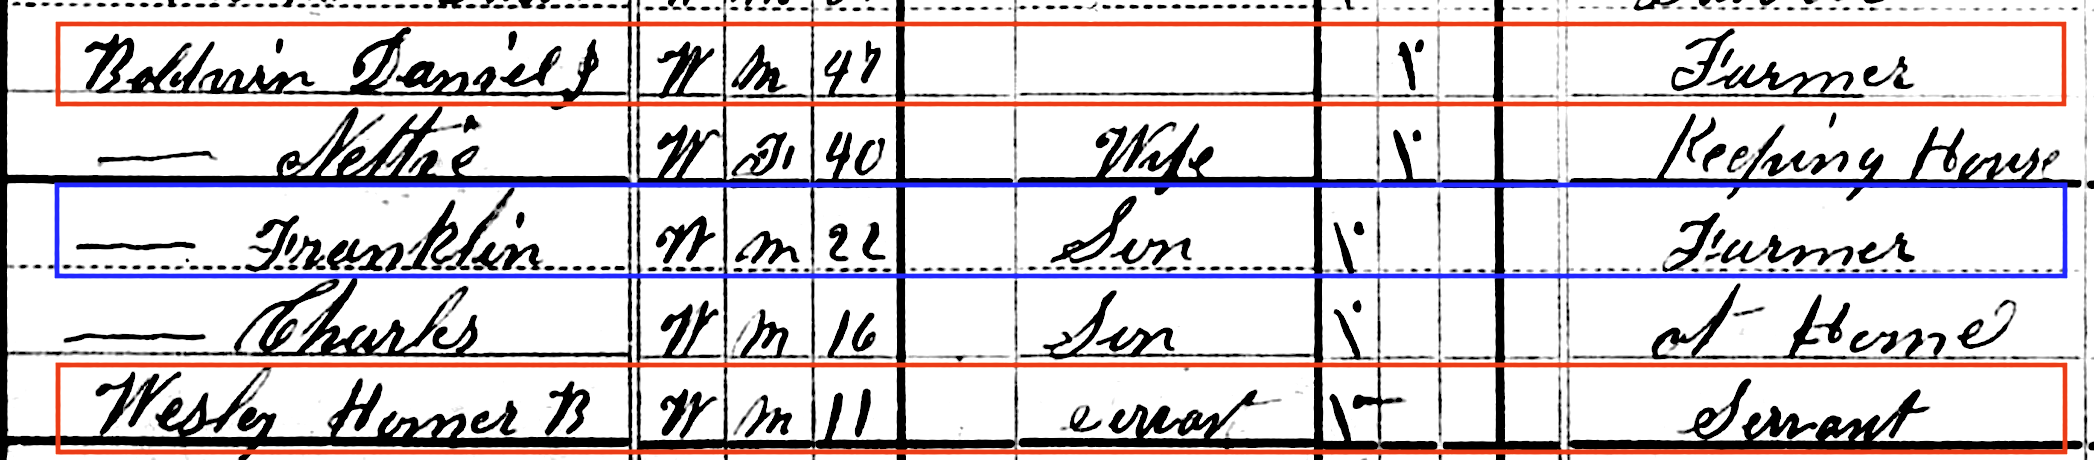 Baldwin Daniel J W M 47 1 Farmer
— Nettie W F 40 Wife 1 Keeping House
— Franklin W M 22 Son 1 Farmer
— Charles W M 16 Son 1 at Home
Wesley Homer B W M 11 Servant 1 Servant